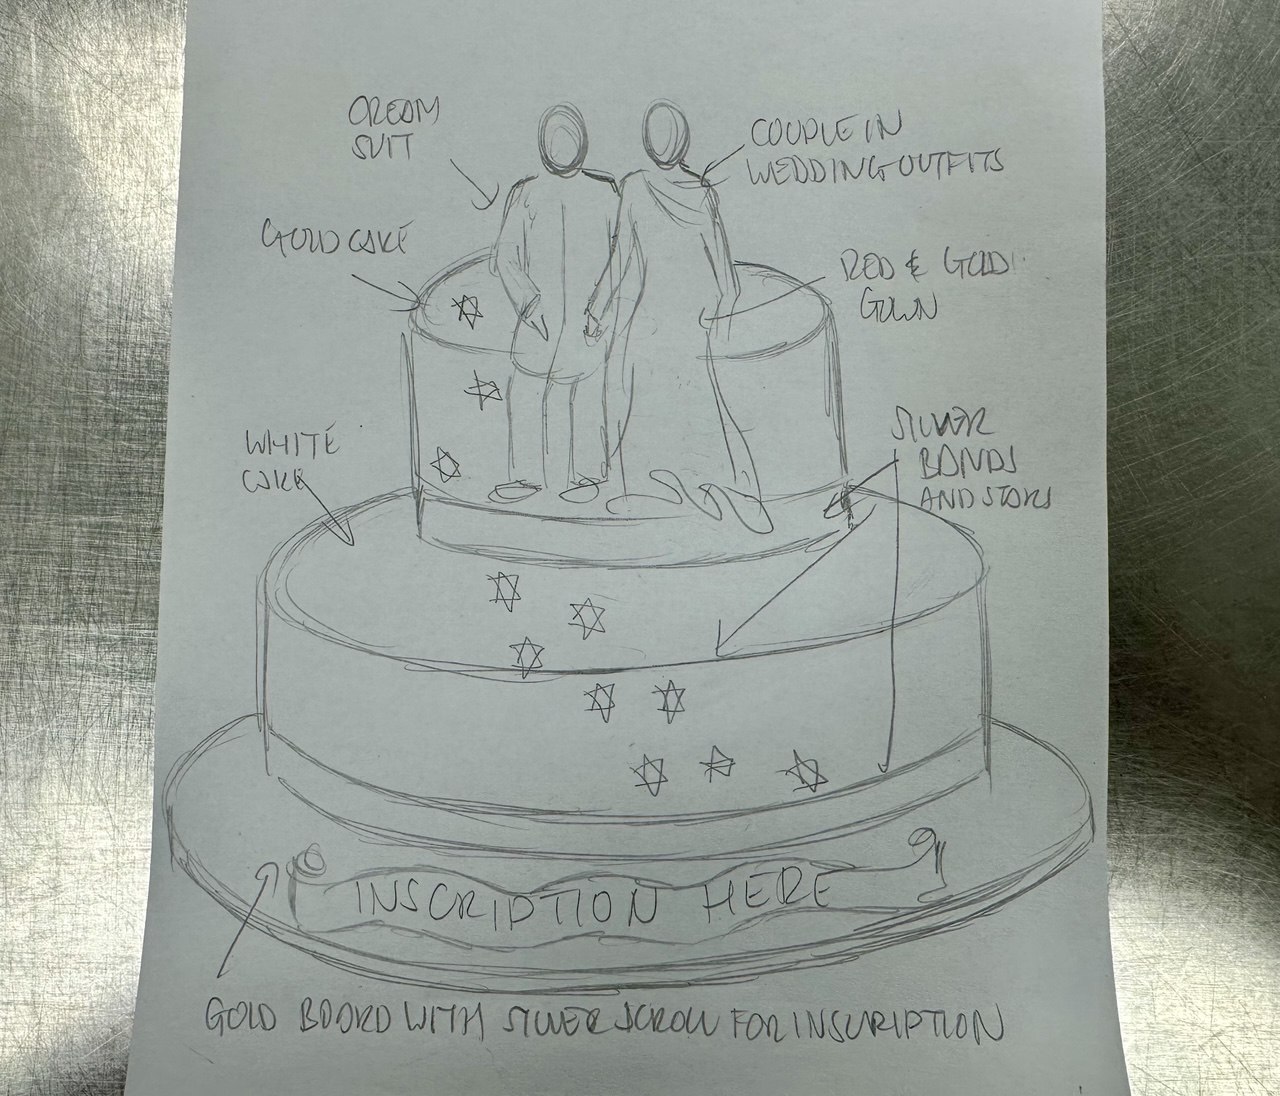 CREAM
SUIT
COUPLE IN
WEDDING OUTFITS
GOLD CAKE
RED & GOLD
GOWN
WHITE
CAKE
SILVER
BANDS
AND STARS
INSCRIPTION HERE
GOLD BOARD WITH SILVER SCROLL FOR INSCRIPTION